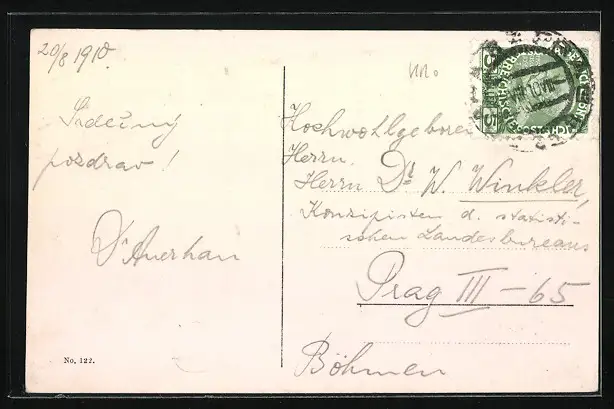 20/8 1910
Srdečný
pozdrav!
Dr Auerhan
No. 122.
Hochwohlgeboren
Herrn
Herrn Dr. W. Winkler,
Konzipisten d. statisti-
schen Landesbureaus
Prag III – 65
Böhmen